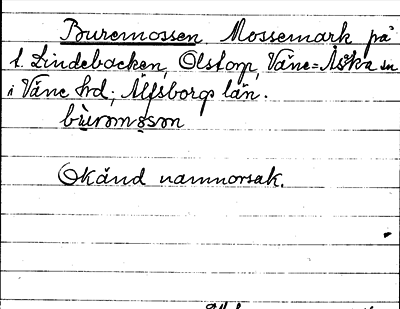 Buremossen Mossemark på
t. Lindebacken, Olstorp, Väne=Åska sn
i Väne hd; Älfsborgs län.
bùrəmɔsən
Okänd namnorsak.